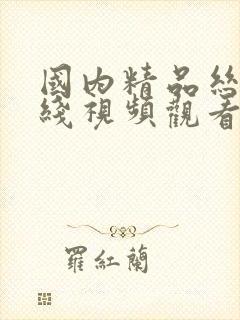 國內精品絲
綫視頻觀看
羅紅蘭